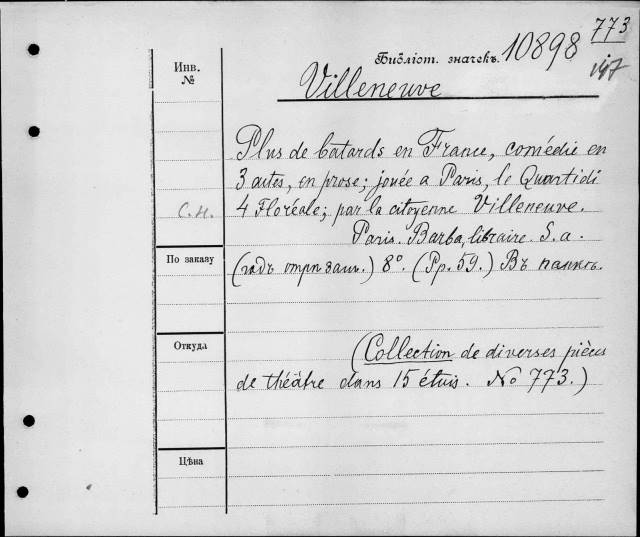 773
Библіот. значекъ. 10898
Инв.
№
Villeneuve
Plus de bâtards en France, comédie en
3 actes, en prose; jouée a Paris, le Quartidi
4 Floréale; par la citoyenne Villeneuve.
С.н.
Paris. Barba, libraire. S. a.
По заказу
(годъ отрѣзанъ.) 8°. (Pp. 59.) Въ папкѣ.
Откуда
(Collection de diverses pièces
de théâtre dans 15 étuis. No 773.)
Цѣна